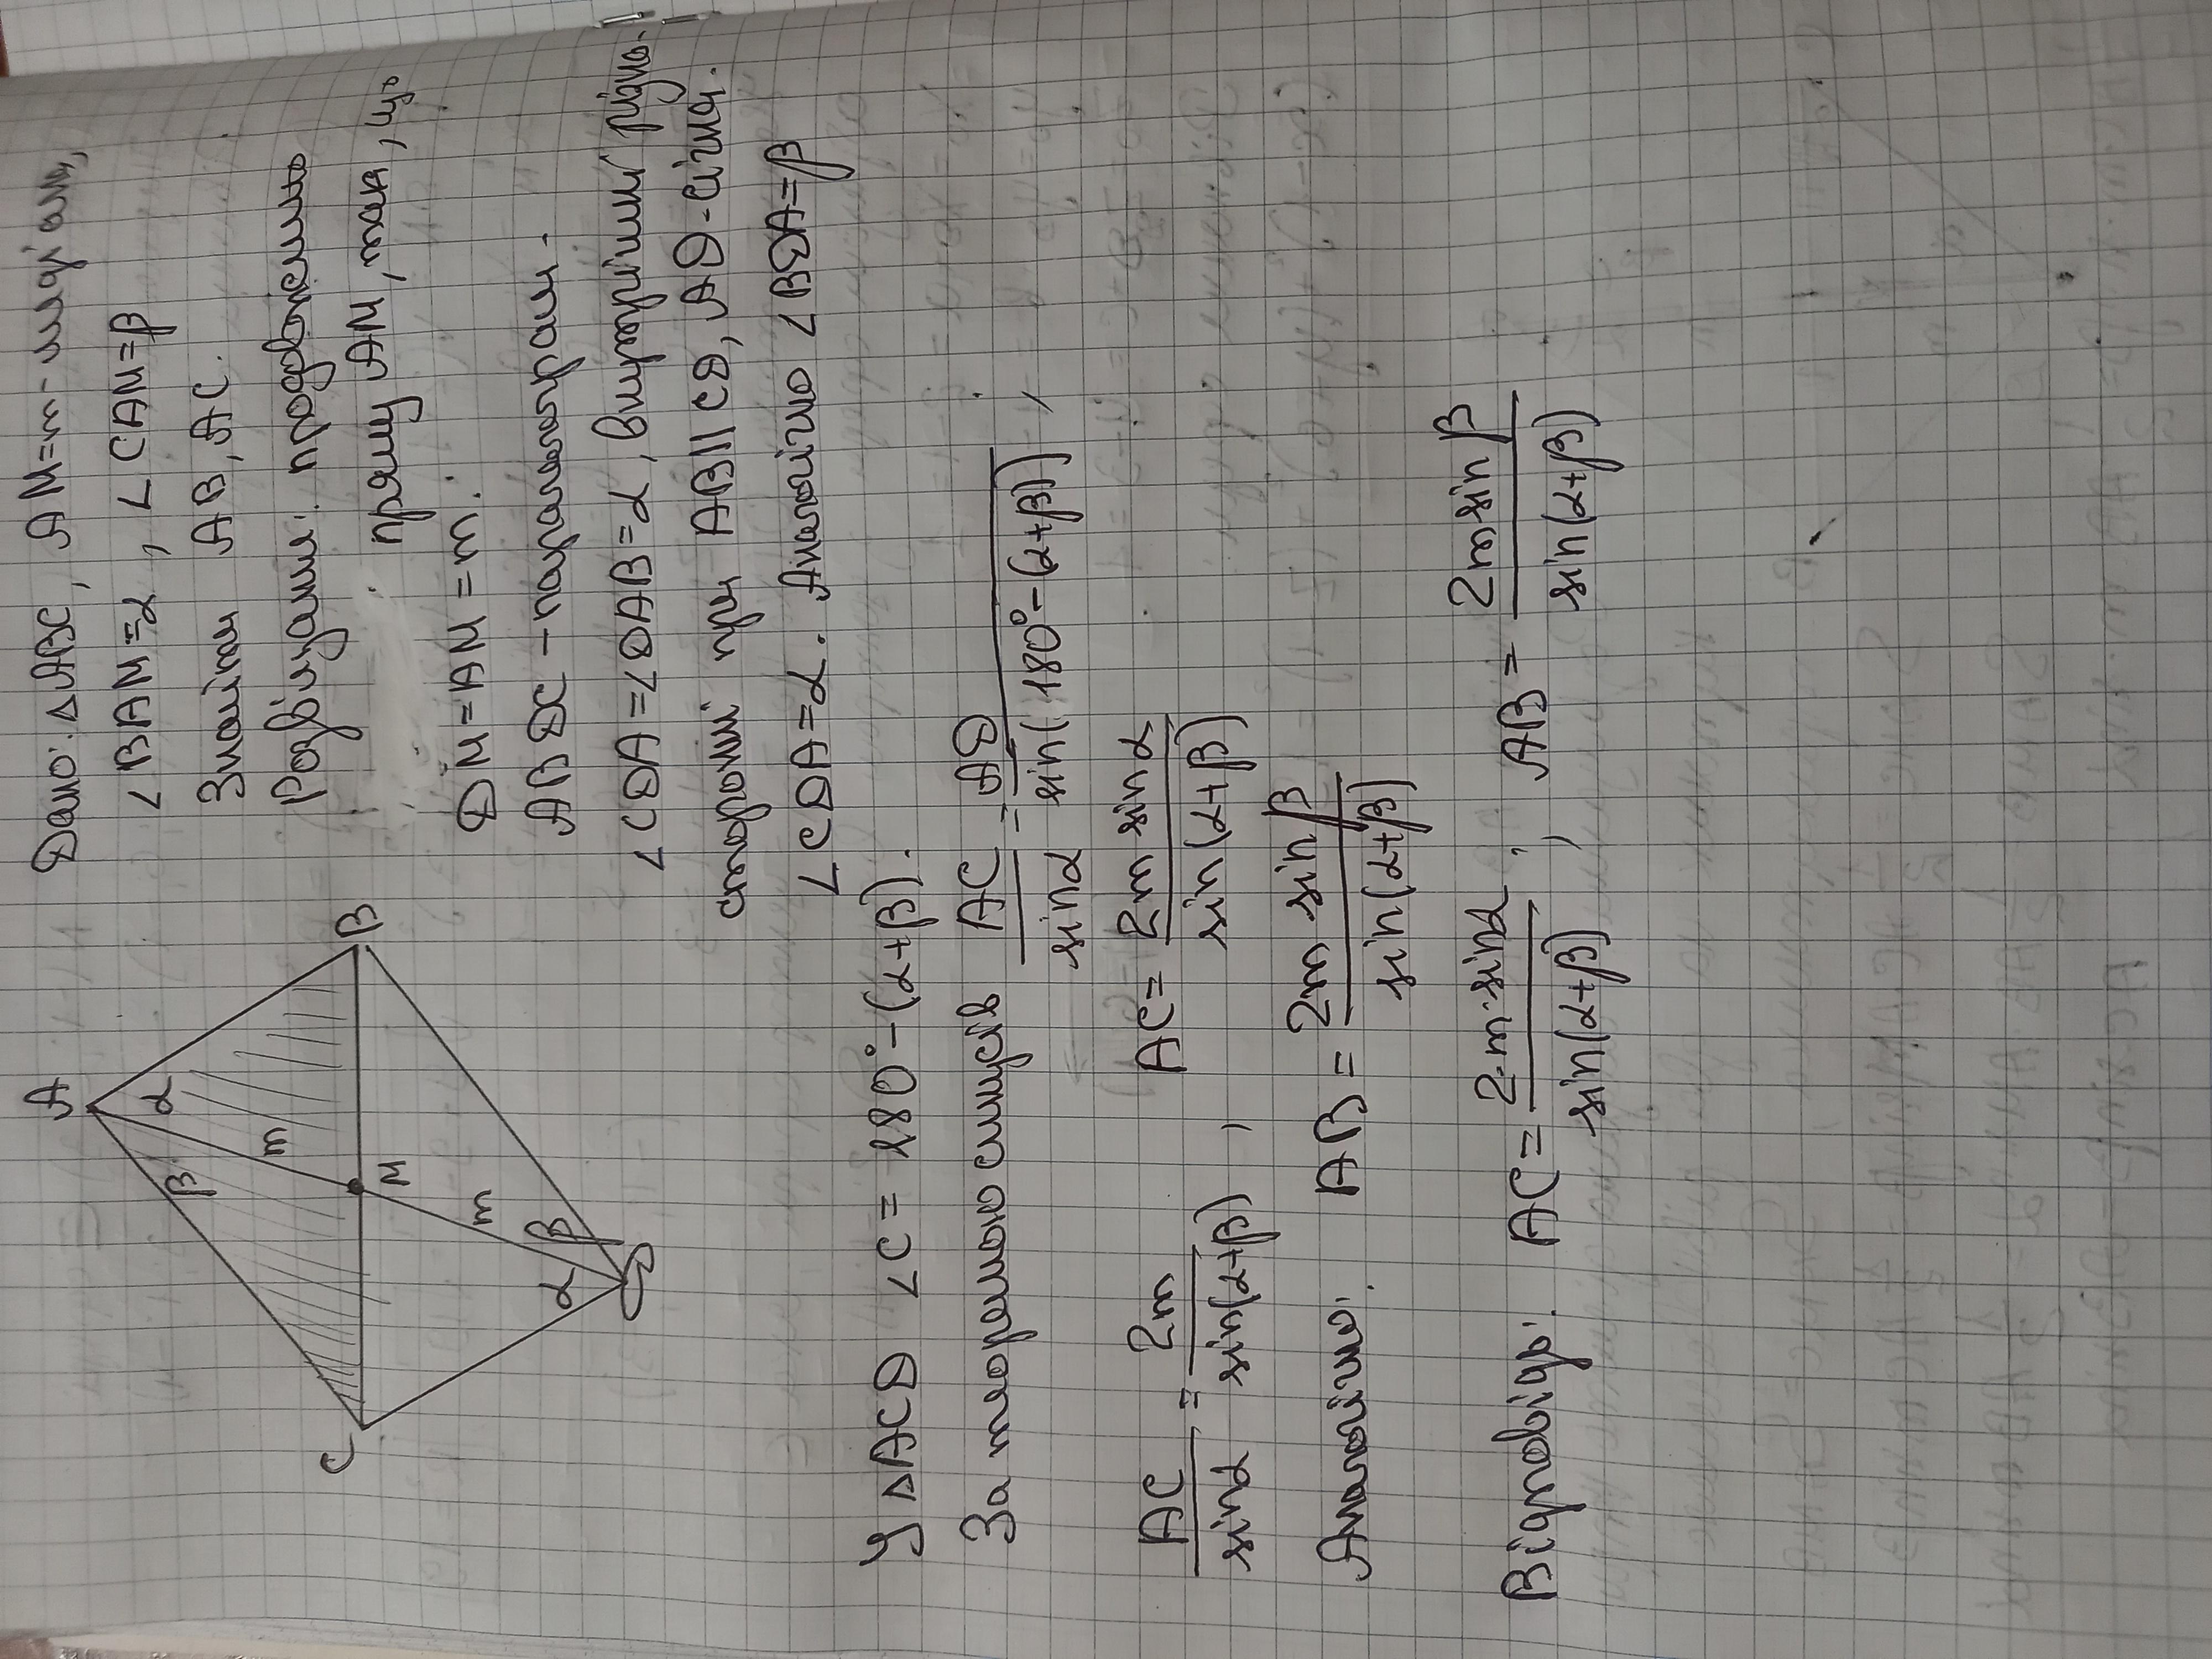 Дано: △ABC, AM=m-медіана,
∠BAM=α, ∠CAM=β
Знайти AB, AC.
Розв'язання: продовжемо
пряму AM, так, що
DM=AM=m.
ABDC - паралелограм.
∠CDA=∠DAB=α, внутрішні різно-
сторонні при AB||CD, AD-січна.
∠CDA=α. Аналогічно ∠BDA=β
A
α
β
m
C
M
B
m
α
β
D
У △ACD ∠C = 180° - (α+β).
За теоремою синусів AC/sinα = AD/sin(180°-(α+β)),
AC/sinα = 2m/sin(α+β), AC = 2m sinα/sin(α+β)
Аналогічно: AB = 2m sinβ/sin(α+β)
Відповідь: AC = 2·m·sinα/sin(α+β), AB = 2m sinβ/sin(α+β)